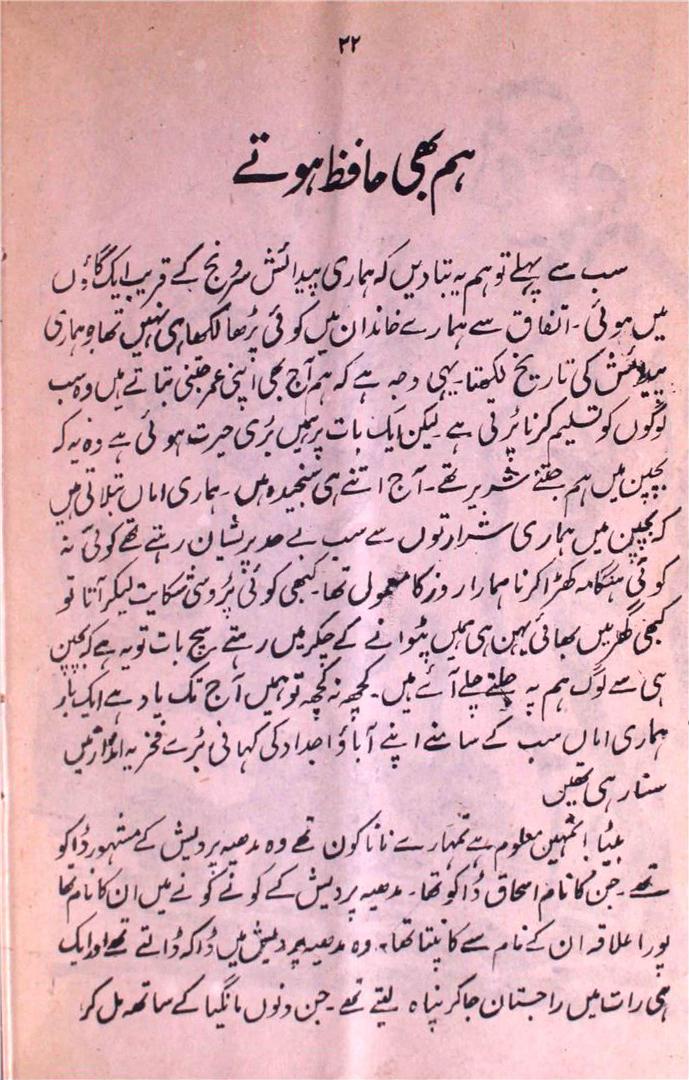 ۳۲
ہم بھی حافظ ہوتے
سب سے پہلے تو ہم یہ بتا دیں کہ ہماری پیدائش سرونج کے قریب ایک گاؤں
میں ہوئی۔ اتفاق سے ہمارے خاندان میں کوئی پڑھا لکھا ہی نہیں تھا جو ہماری
پیدائش کی تاریخ لکھتا۔ یہی وجہ ہے کہ ہم آج بھی اپنی عمر جتنی بتاتے ہیں وہ سب
لوگوں کو تسلیم کرنا پڑتی ہے لیکن ایک بات پر ہمیں بڑی حیرت ہوئی ہے وہ یہ کہ
بچپن میں ہم جتنے شریر تھے۔ آج اتنے ہی سنجیدہ ہیں۔ ہماری اماں بتلاتی ہیں
کہ بچپن میں ہماری شرارتوں سے سب بے حد پریشان رہتے تھے کوئی نہ
کوئی ہنگامہ کھڑا کرنا ہمارا روز کا معمول تھا۔ کبھی کوئی پڑوسی شکایت لیکر آتا تو
کبھی گھر میں بھائی بہن ہی ہمیں پٹوانے کے چکر میں رہتے سچ بات تو یہ ہے کہ بچپن
ہی سے لوگ ہم پہ جلتے چلے آئے ہیں۔ کچھ نہ کچھ تو ہمیں آج تک یاد ہے ایک بار
ہماری اماں سب کے سامنے اپنے آباؤ اجداد کی کہانی بڑے فخریہ انداز میں
سنا رہی تھیں
بیٹا! تمہیں معلوم ہے تمہارے نانا کون تھے وہ مدھیہ پردیش کے مشہور ڈاکو
تھے۔ جن کا نام اسحاق ڈاکو تھا۔ مدھیہ پردیش کے کونے کونے میں ان کا نام تھا
پورا علاقہ ان کے نام سے کانپتا تھا۔ وہ مدھیہ پردیش میں ڈاکہ ڈالتے تھے اور ایک
ہی رات میں راجستان جا کر پناہ لیتے تھے۔ جن دنوں مانگیا کے ساتھ مل کر